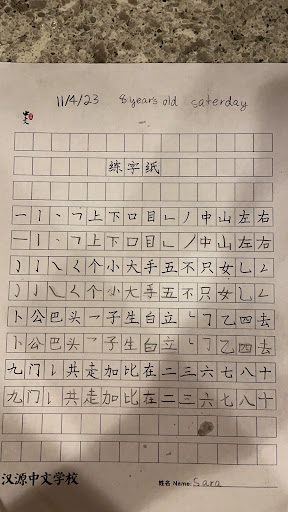 11/4/23 8 years old saterday
中文
练字纸
一丨丶㇕上下口目𠃊丿中山左右
一丨丶㇕上下口目𠃊丿中山左右
亅㇁㇏㇛个小大手五不只女乚𠃋
亅㇁㇏㇛个小大手五不只女乚𠃋
卜公巴头㇀子生白立㇗㇆乙四去
卜公巴头㇀子生白立㇗㇆乙四去
九门㇙共走加比在二三六七八十
九门㇙共走加比在二三六七八十
汉源中文学校
姓名 Name: Sara